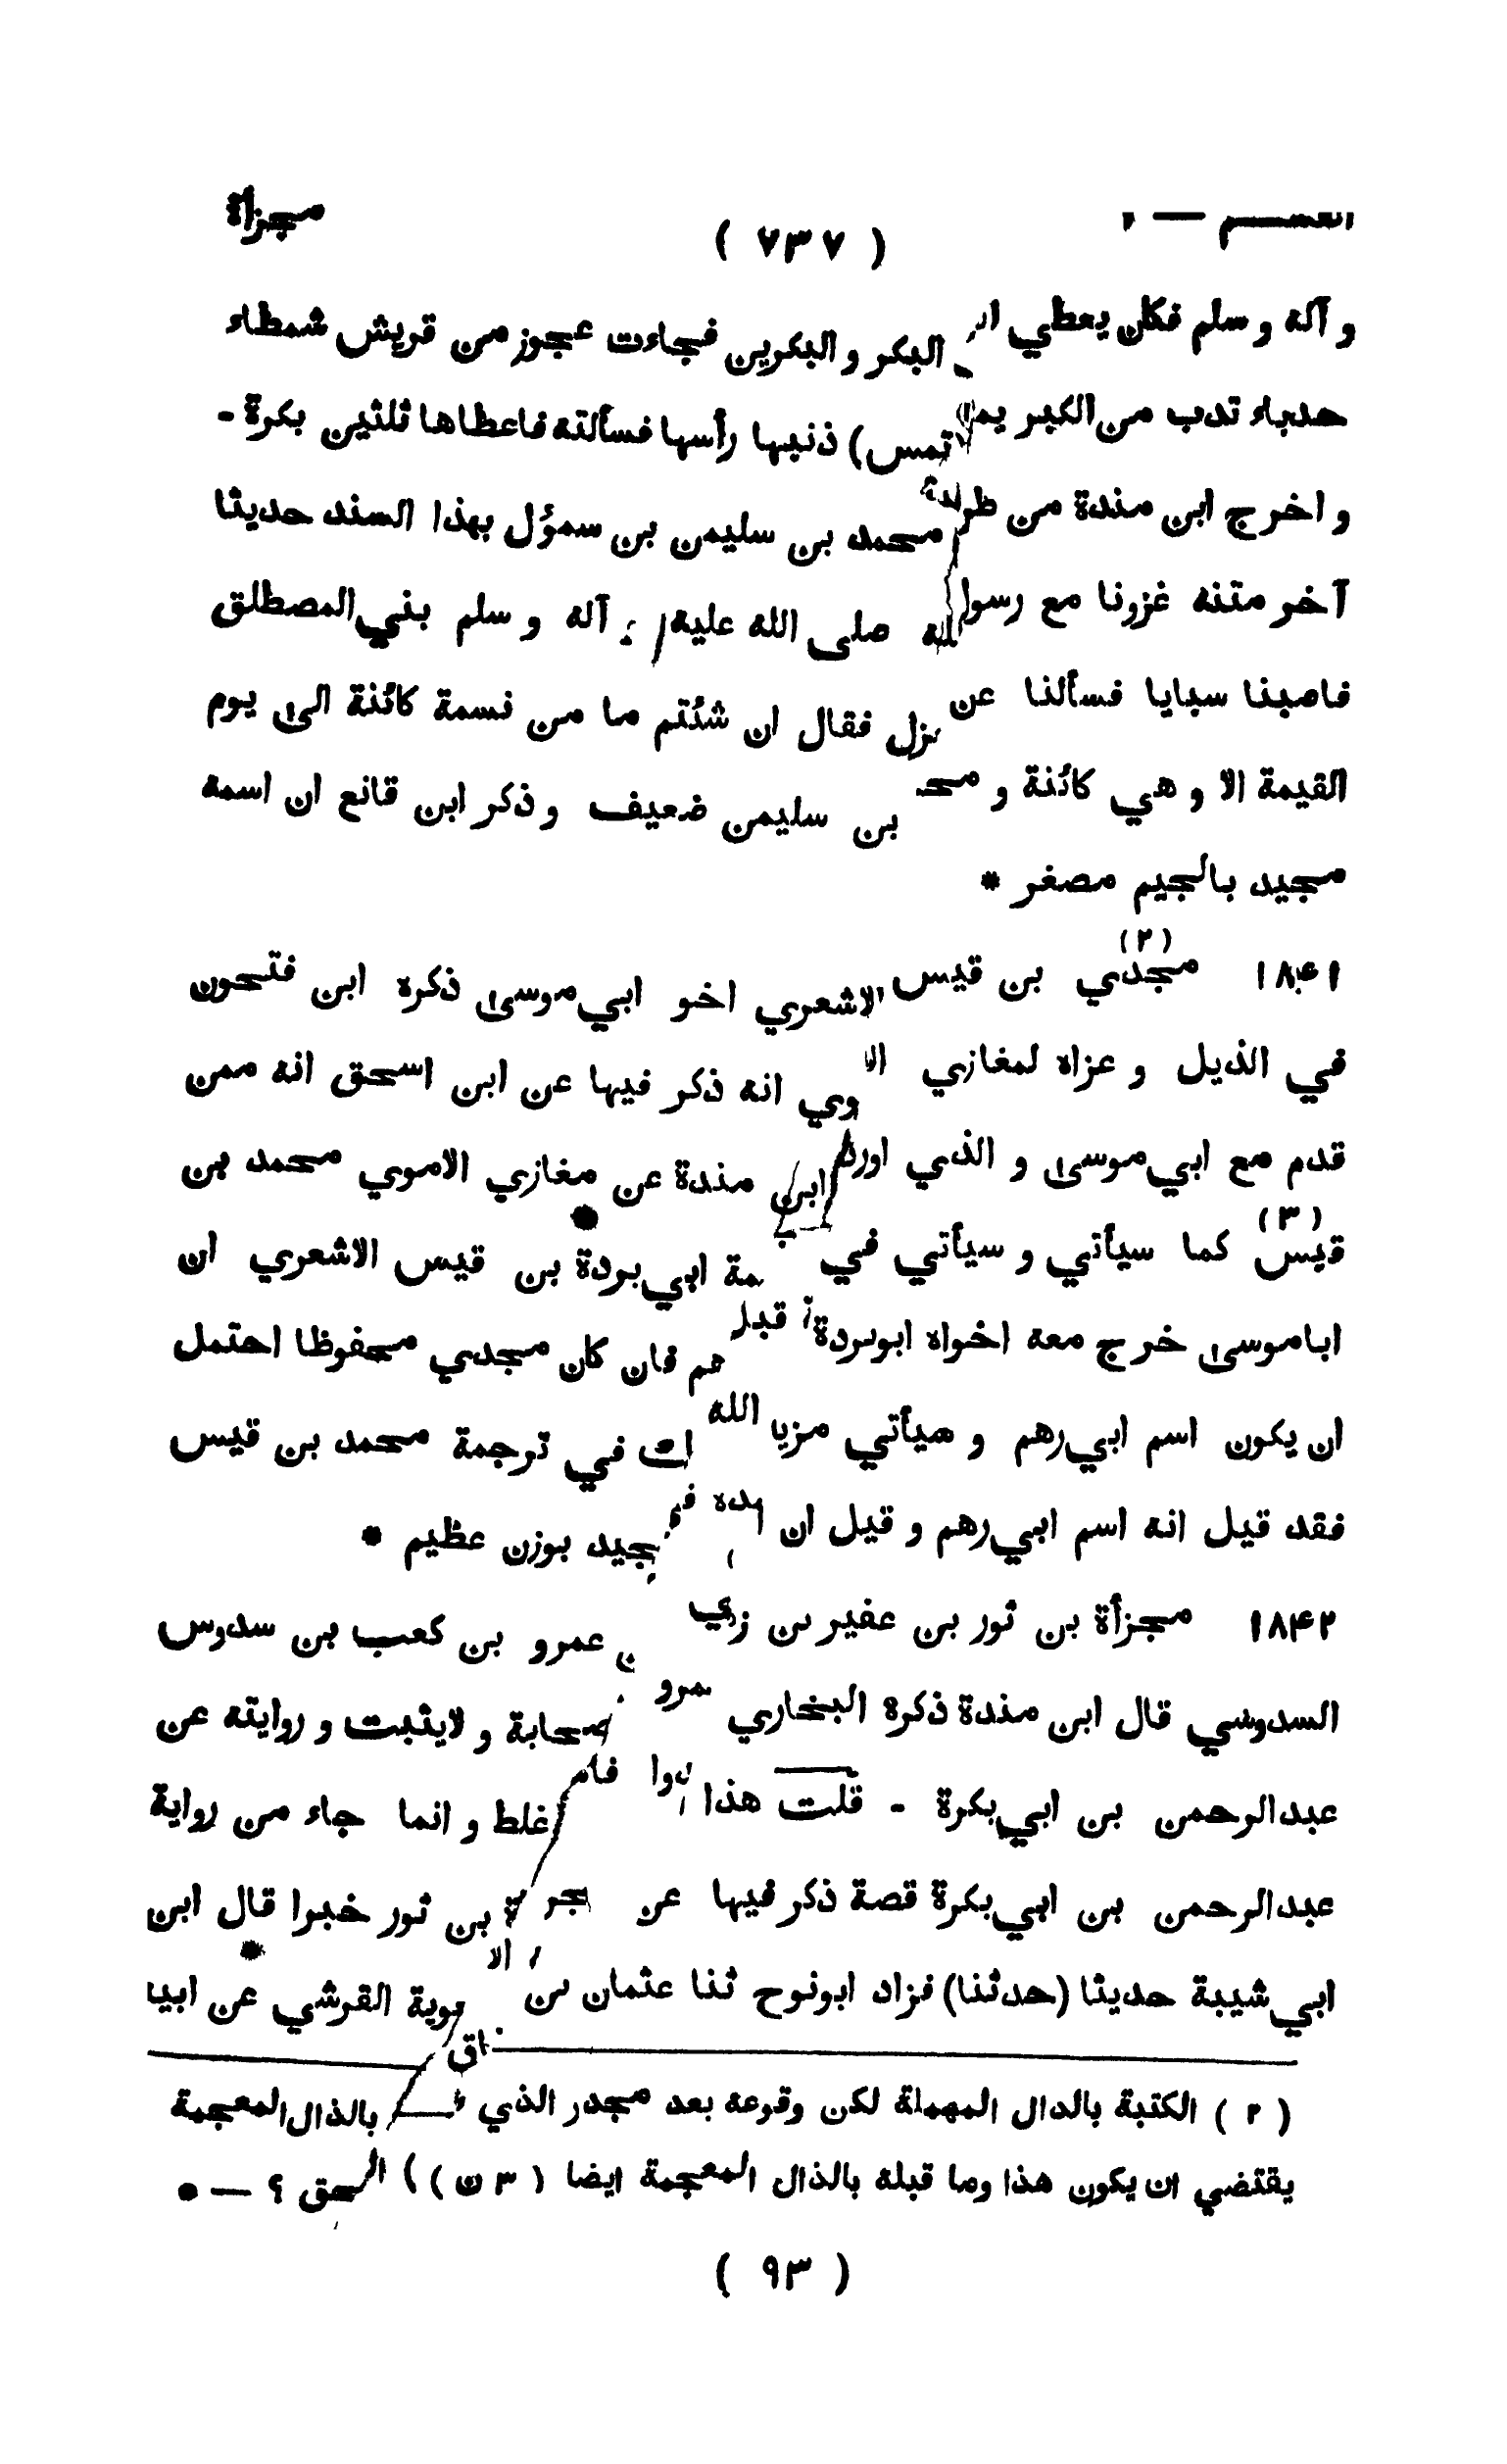 القسم — ( ٧٣٧ ) مجزأة
و آله و سلم فكان يعطي البكر و البكرين فجاءت عجوز من قريش شمطاء
حدباء تدب من الكبر تمس) ذنبها رأسها فسألته فاعطاها ثلثين بكرة -
و اخرج ابن مندة من محمد بن سليمن بن سمؤل بهذا السند حديثا
آخر متنه غزونا مع رسول الله صلى الله عليه و آله و سلم بني المصطلق
فاصبنا سبايا فسألنا عن فقال ان شئتم ما من نسمة كائنة الى يوم
القيمة الا و هي كائنة و محمد بن سليمن ضعيف و ذكر ابن قانع ان اسمه
مجيد بالجيم مصغر *
١٨٤١ مجدي (٢) بن قيس الاشعري اخو ابي موسى ذكره ابن فتحون
في الذيل و عزاه لمغازي الاموي انه ذكر فيها عن ابن اسحق انه ممن
قدم مع ابي موسى و الذي اورد ابن مندة عن مغازي الاموي محمد بن
قيس (٣) كما سيأتي و سيأتي في ابي بردة بن قيس الاشعري ان
اباموسى خرج معه اخواه ابوبردة فان كان مجدي محفوظا احتمل
ان يكون اسم ابي رهم و سيأتي الله في ترجمة محمد بن قيس
فقد قيل انه اسم ابي رهم و قيل ان بوزن عظيم *
١٨٤٢ مجزأة بن ثور بن عفير بن عمرو بن كعب بن سدوس
السدوسي قال ابن مندة ذكره البخاري و لايثبت و روايته عن
عبدالرحمن بن ابي بكرة - قلت هذا غلط و انما جاء من رواية
عبدالرحمن بن ابي بكرة قصة ذكر فيها عن بن ثور خبرا قال ابن
ابي شيبة حديثا (حدثنا) فزاد ابونوح ثنا عثمان بن القرشي عن ابيه
( ٢ ) الكتبة بالدال المهملة لكن وقوعه بعد مجدر الذي بالذال المعجمة
يقتضي ان يكون هذا وما قبله بالذال المعجمة ايضا ( ٣ ن ) ( اسحق ؟ — *
( ٩٣ )